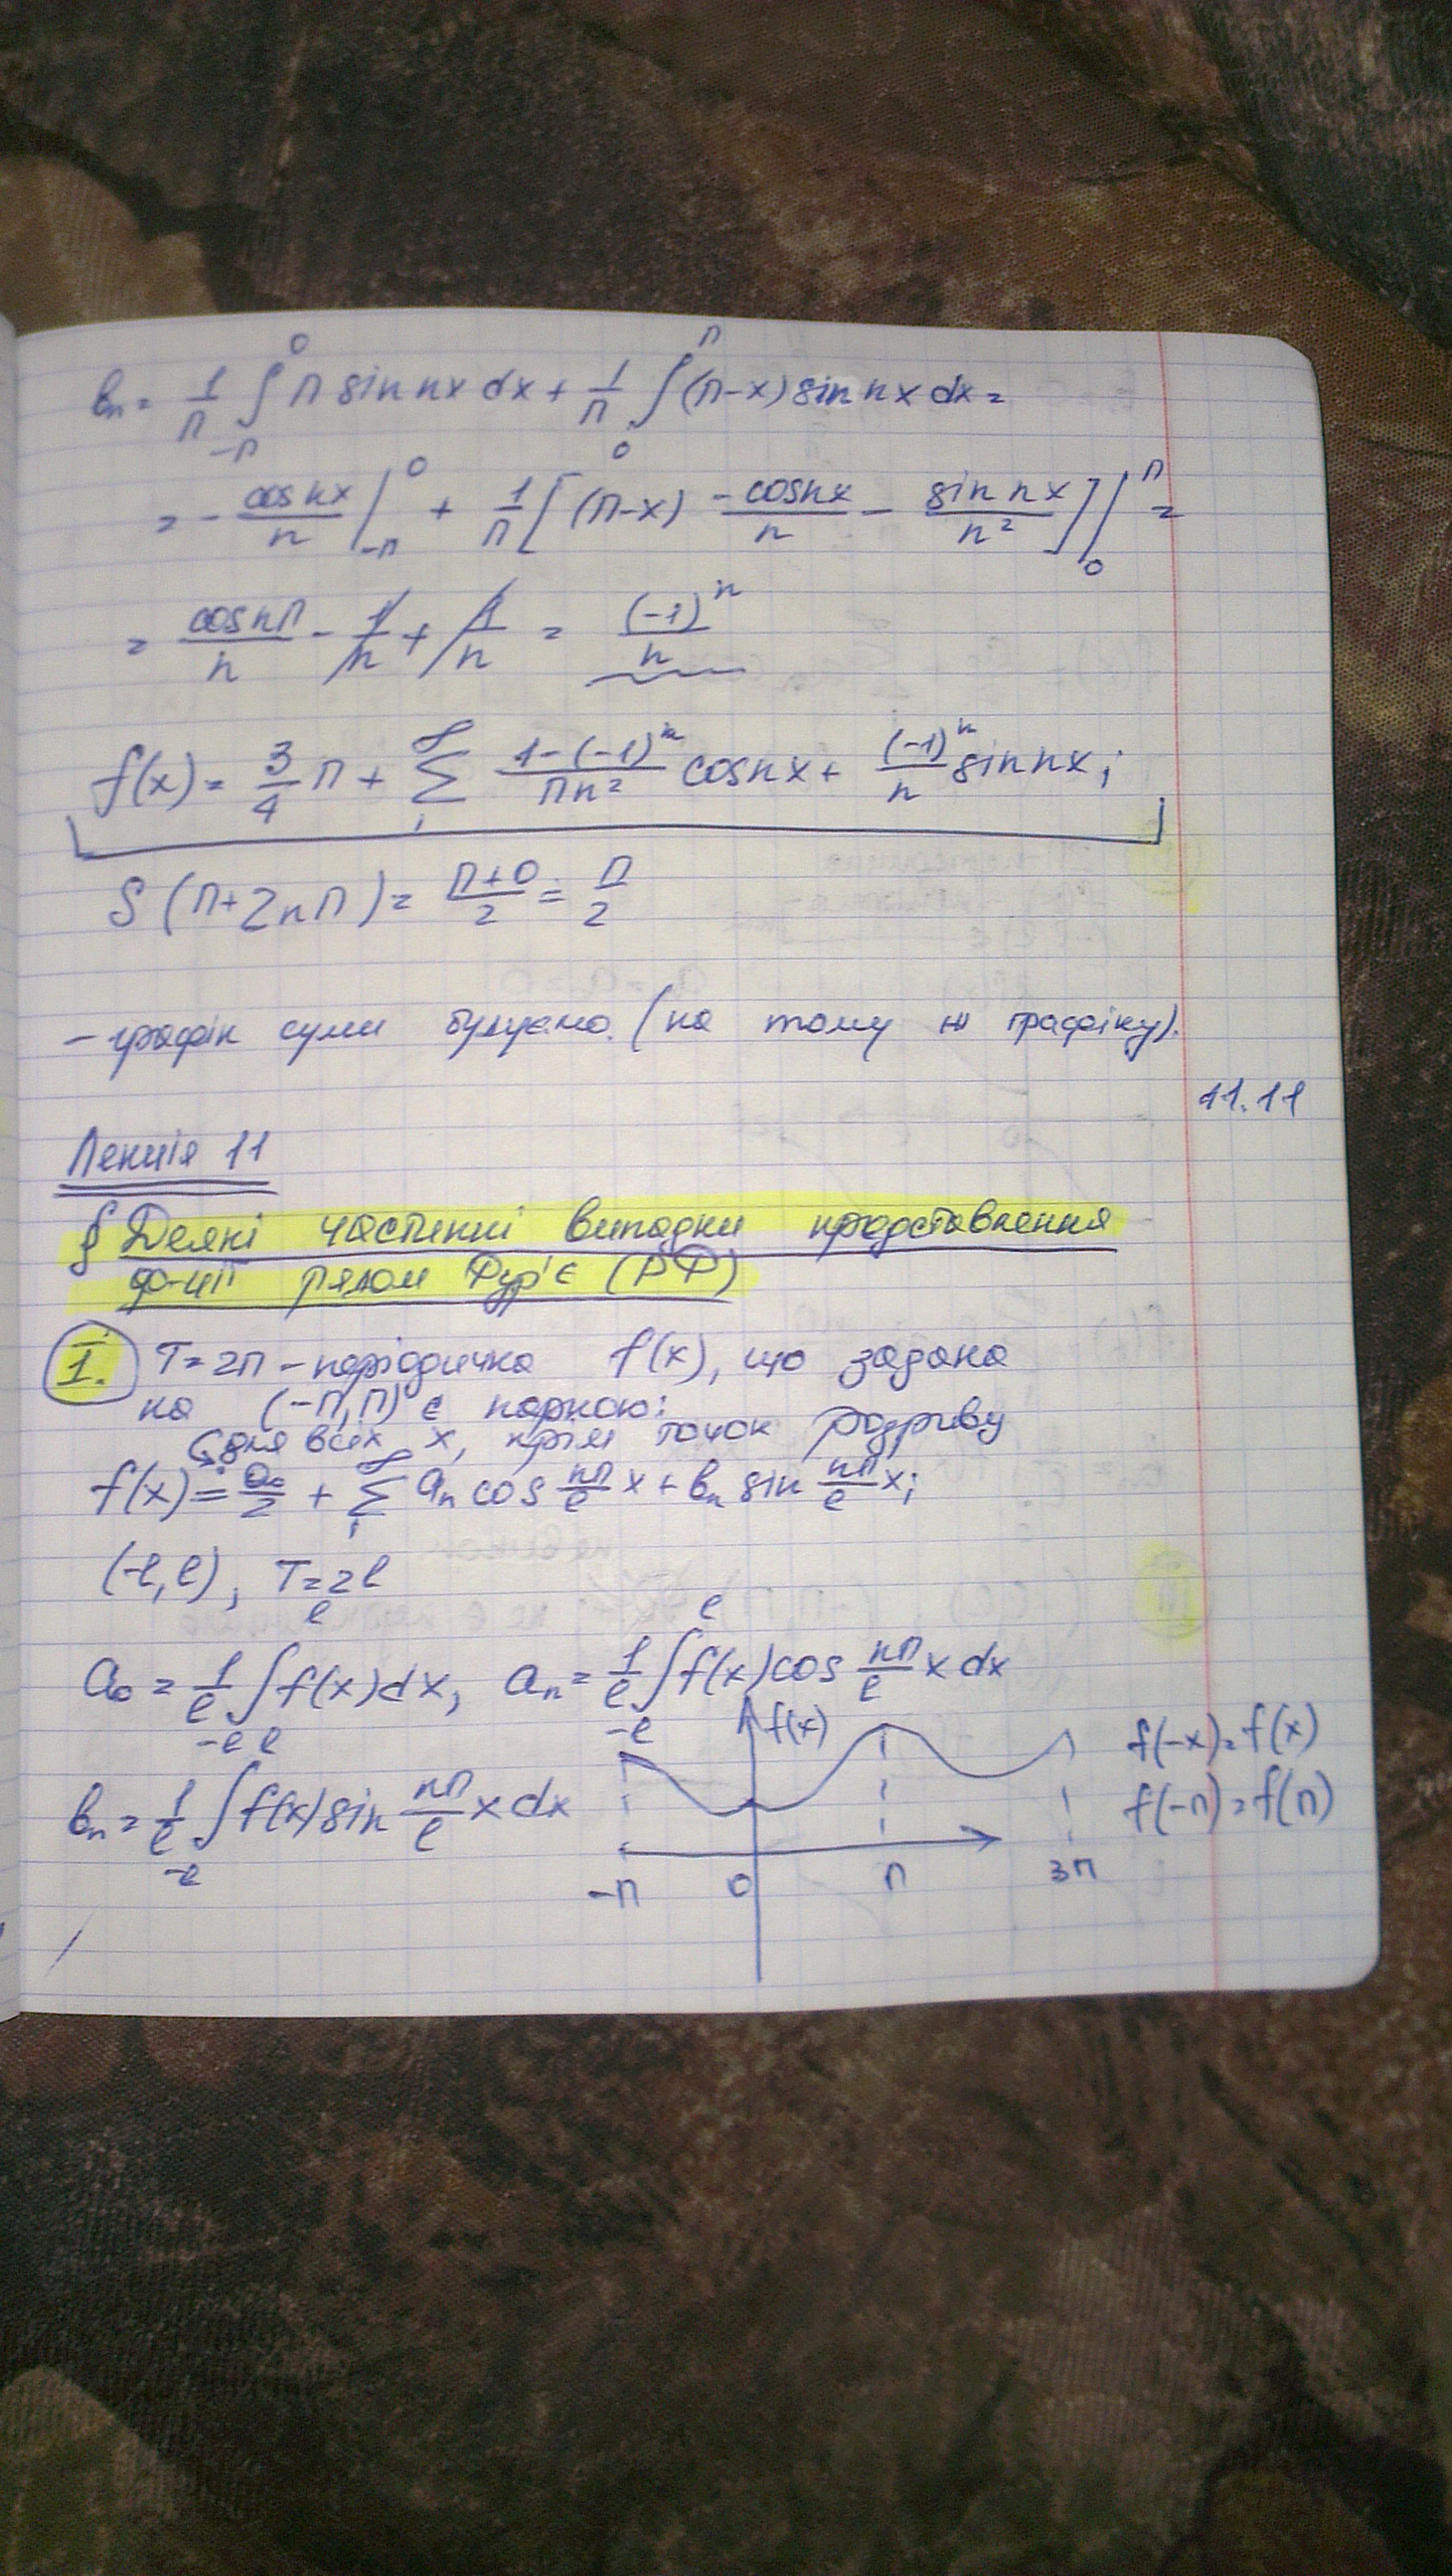 bn = 1/π ∫_{-π}^{0} π sin nx dx + 1/π ∫_{0}^{π} (π-x) sin nx dx =
= - cos nx/n |_{-π}^{0} + 1/π [(π-x) -cos nx/n - sin nx/n²] |_{0}^{π} =
= cos nπ/n - 1/n + 1/n = (-1)^n/n
f(x) = 3/4 π + ∑_{1}^{∞} 1-(-1)^n/πn² cos nx + (-1)^n/n sin nx;
S(π+2nπ) = π+0/2 = π/2
- графік суми будуємо (на тому ж графіку).
11.11
Лекція 11
§ Деякі частинні випадки представлення
ф-ції рядом Фур'є (РФ)
I. T=2π - періодична f(x), що задана
на (-π,π) є парною:
для всіх x, крім точок розриву
f(x) = a₀/2 + ∑_{1}^{∞} an cos nπ/l x + bn sin nπ/l x;
(-l,l), T=2l
a₀ = 1/l ∫_{-l}^{l} f(x)dx, an = 1/l ∫_{-l}^{l} f(x) cos nπ/l x dx
bn = 1/l ∫_{-l}^{l} f(x) sin nπ/l x dx
f(x)
f(-x)=f(x)
f(-π)=f(π)
-π 0 π 3π